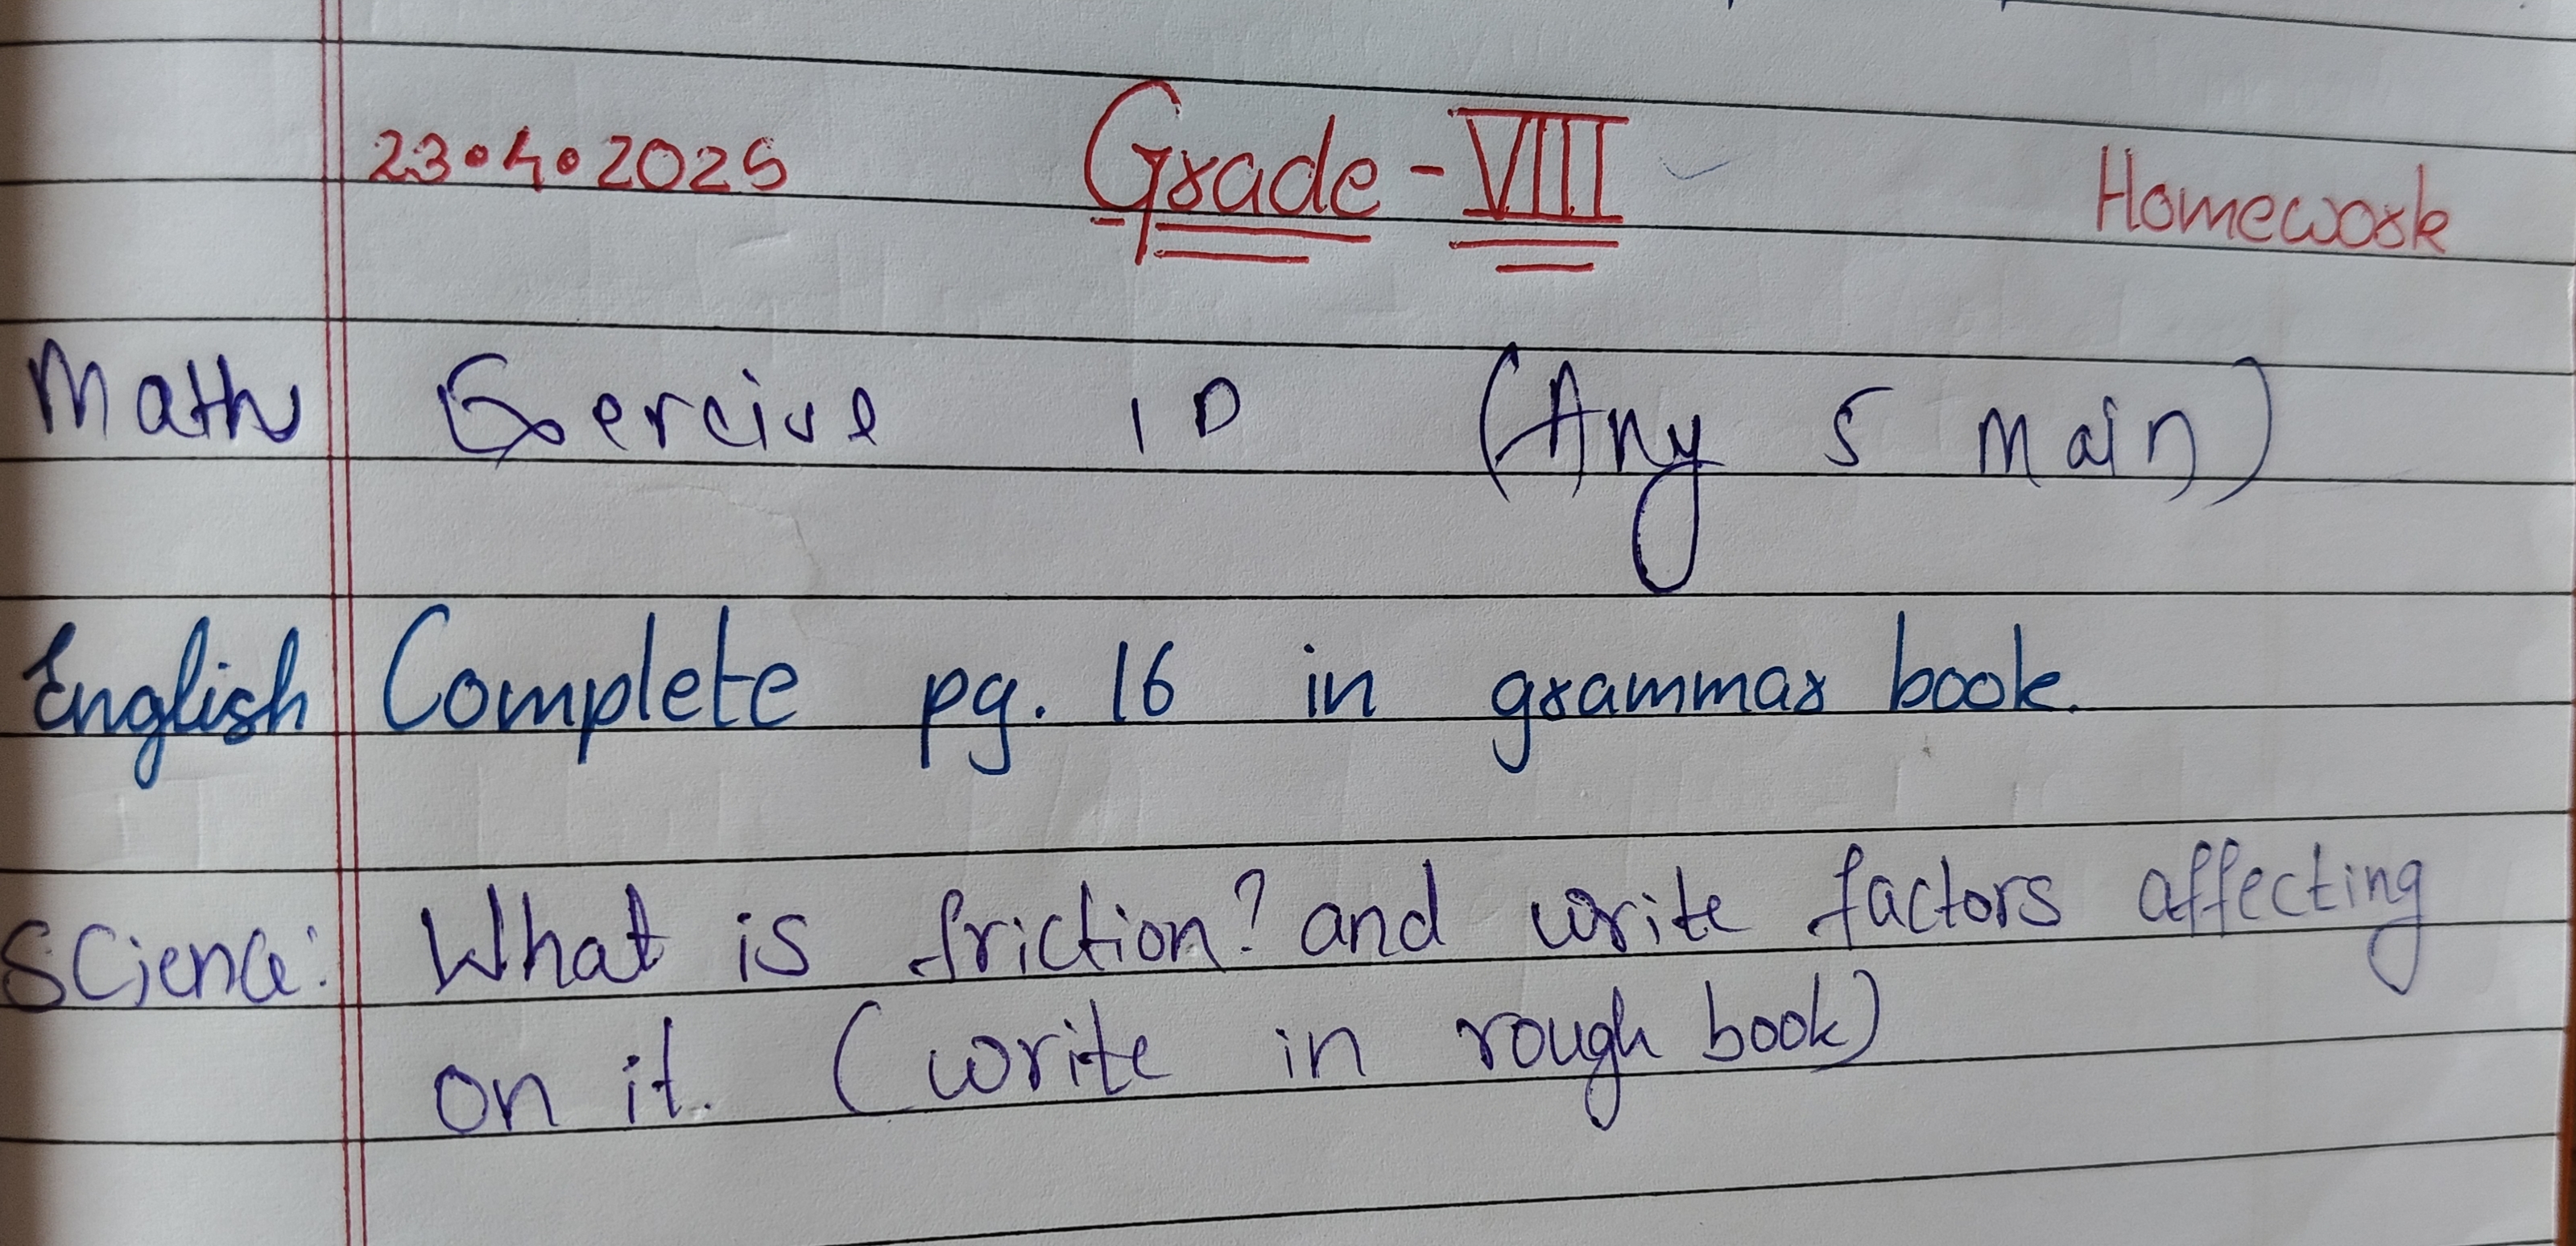 23.4.2025 Grade - VIII Homework
Math Exercise 1D (Any 5 main)
English Complete pg. 16 in grammar book.
Science: What is friction? and write factors affecting
on it. (write in rough book)